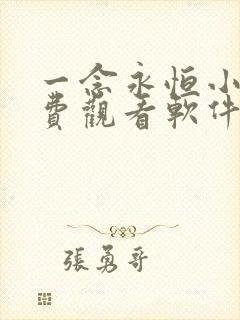 一念永恒小
費觀看軟件
張勇哥